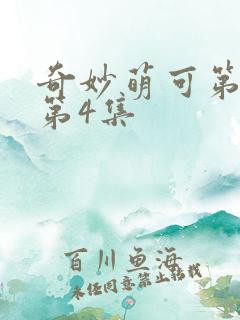 奇妙萌可第
第4集
百川鱼海
未经同意禁止转载